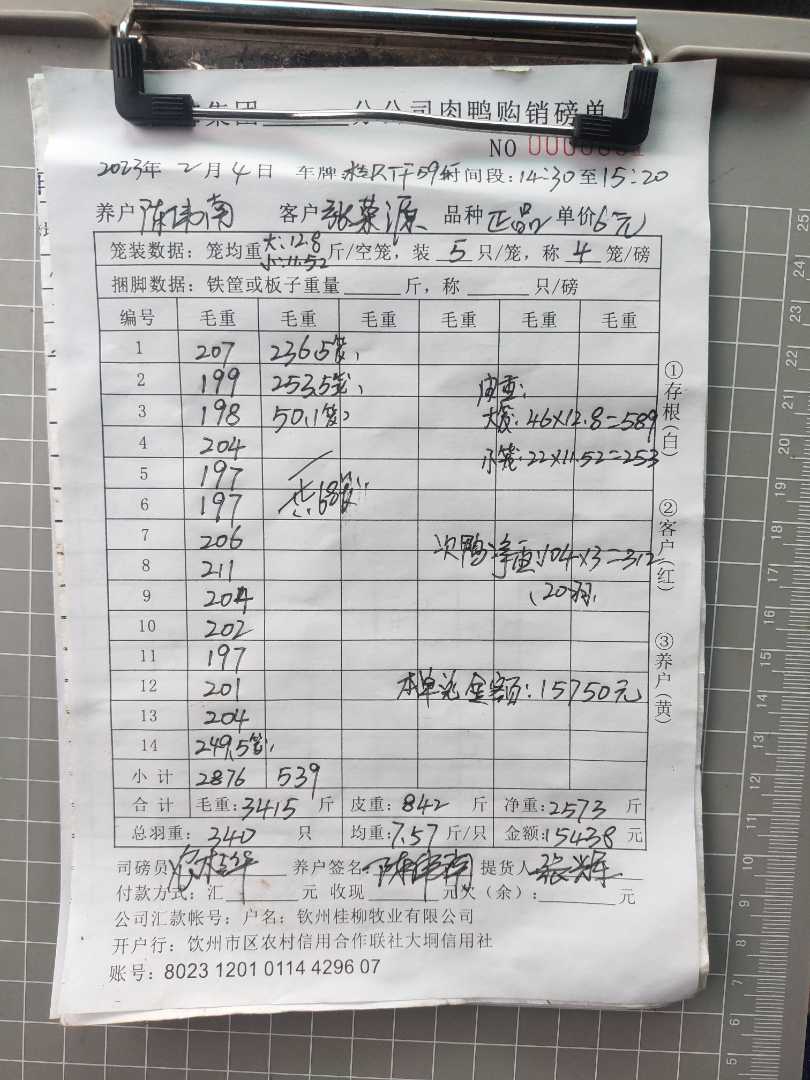 集团 分公司肉鸭购销磅单
NO 0000
2023年 2月 4日 车牌 时间段:14:30至15:20
养户 陈伟南 客户 张荣源 品种 正品 单价6元
笼装数据:笼均重大:12.8 小:11.52 斤/空笼,装 5 只/笼,称 4 笼/磅
捆脚数据:铁筐或板子重量 斤,称 只/磅
编号 毛重 毛重 毛重 毛重 毛重 毛重
1 207 236.5
2 199 253.5
3 198 50.1
4 204
5 197
6 197 共68笼
7 206
8 211
9 204
10 202
11 197
12 201
13 204
14 249.5
皮重:
大笼:46×12.8=589
小笼:22×11.52=253
次鸭净重:104×3=312
(20羽)
本单总金额:15750元
小计 2876 539
合计 毛重:3415 斤 皮重:842 斤 净重:2573 斤
总羽重:340 只 均重:7.57 斤/只 金额:15438 元
司磅员 养户签名:陈伟南 提货人
付款方式:汇 元 收现 元欠(余): 元
公司汇款帐号:户名:钦州桂柳牧业有限公司
开户行:钦州市区农村信用合作联社大垌信用社
账号:8023 1201 0114 4296 07
①存根(白)
②客户(红)
③养户(黄)
25
24
23
22
21
20
19
18
17
16
15
14
13
12
11
10
9
8
7
6
5